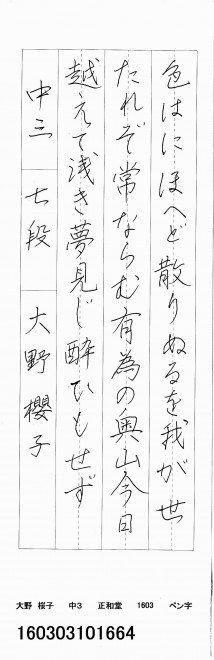 色はにほへど散りぬるを我が世
たれぞ常ならむ有為の奥山今日
越えて浅き夢見じ酔ひもせず
中三 七段 大野櫻子
大野 桜子 中3 正和堂 1603 ペン字
160303101664